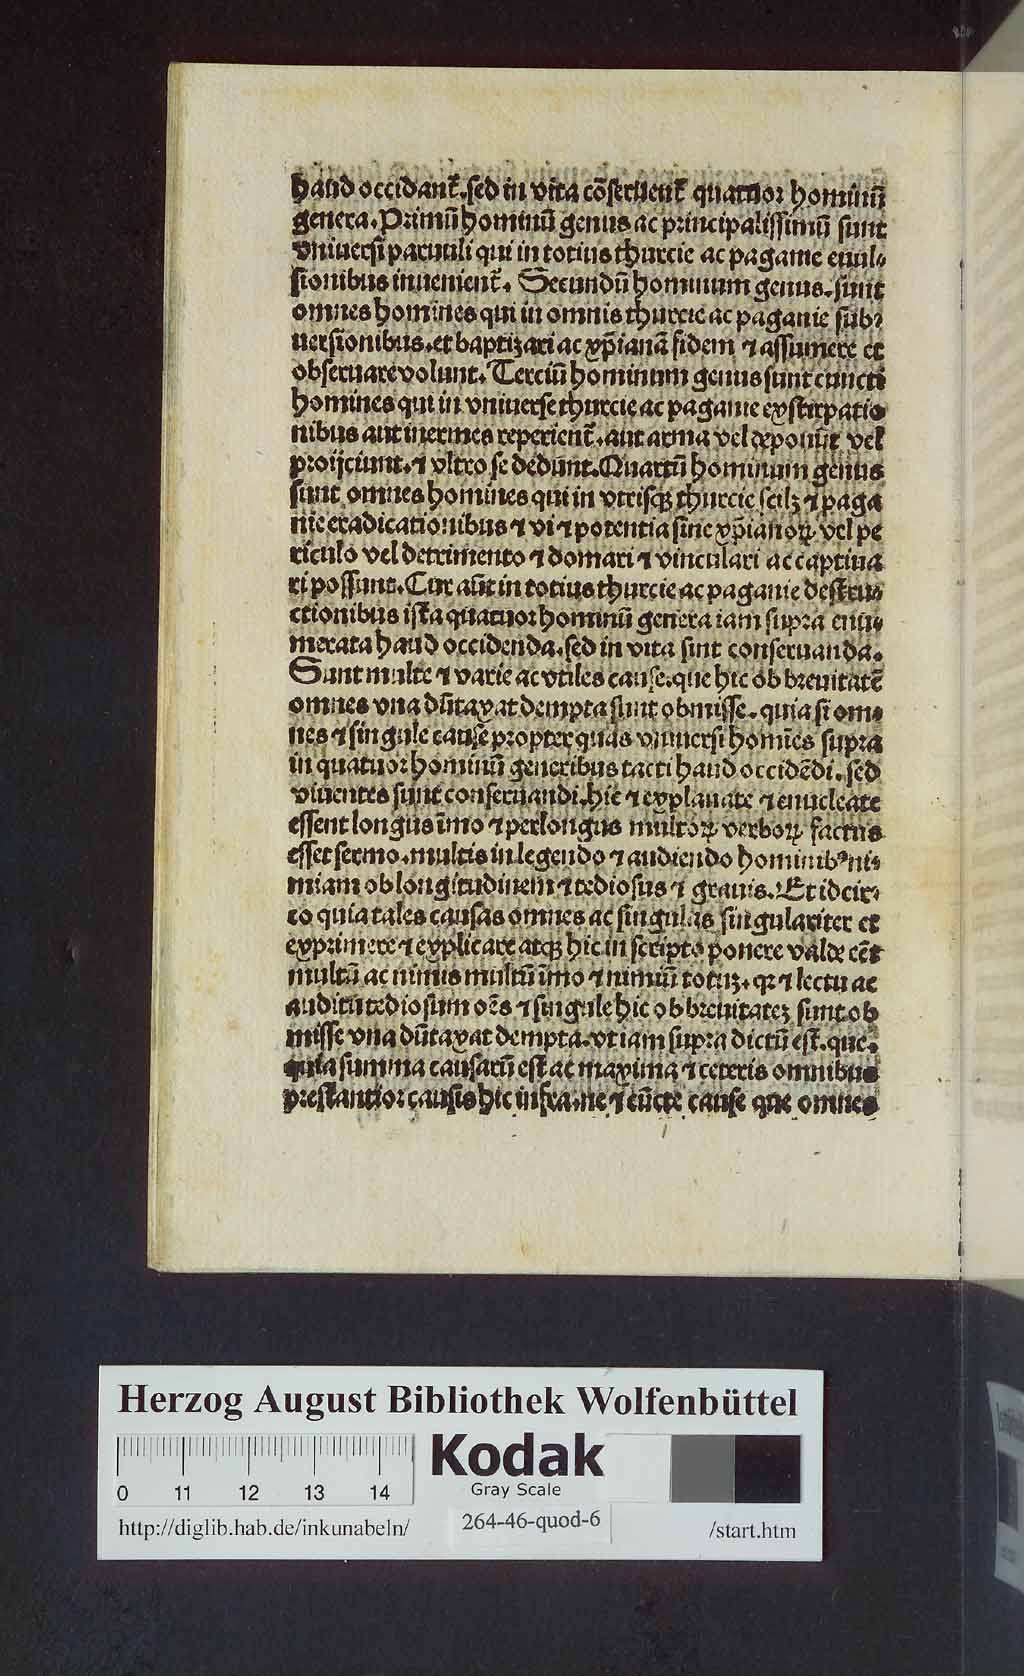 haud occidant᷑. sed in vita cōseruent᷑ quatuor hominū
genera. Primū hominū genus ac principalissimū sunt
vniuersi paruuli qui in totius thurcie ac paganie euul⸗
sionibus inuenient᷑. Secundū hominum genus. sunt
omnes homines qui in omnis thurcie ac paganie sub⸗
uersionibus. et baptizari ac xp̄ianā fidem ⁊ assumere et
obseruare volunt. Terciū hominum genus sunt cuncti
homines qui in vniuerse thurcie ac paganie exstirpatio
nibus aut inermes reperient᷑. aut arma vel deponūt vel
proijciunt. ⁊ vltro se dedunt. Quartū hominum genus
sunt omnes homines qui in vtriusqꝫ thurcie scilꝫ ⁊ paga
nie eradicationibus ⁊ vi ⁊ potentia sine xp̄ianoꝝ vel pe
riculo vel detrimento ⁊ domari ⁊ vinculari ac captiua
ri possunt. Cur aūt in totius thurcie ac paganie destru⸗
ctionibus ista quatuor hominū genera iam supra enu⸗
merata haud occidenda. sed in vita sint conseruanda.
Sunt multe ⁊ varie ac vtiles cause. que hic ob breuitatē
omnes vna dūtaxat dempta sunt obmisse. quia si om⸗
nes ⁊ singule cause propter quas vniuersi homīes supra
in quatuor hominū generibus tacti haud occidēdi. sed
viuentes sunt conseruandi. hic ⁊ explanate ⁊ enucleate
essent longus īmo ⁊ perlongus multoꝝ verboꝝ factus
esset sermo. multis in legendo ⁊ audiendo hominibꝰ ni⸗
miam ob longitudinem ⁊ tediosus ⁊ grauis. Et idcir⸗
co quia tales causas omnes ac singulas singulariter et
exprimere ⁊ explicare atqꝫ hic in scripto ponere valde eēt
multū ac nimis multū īmo ⁊ nimiū totiꝫ. qr ⁊ lectu ac
auditu tediosum oēs ⁊ singule hic ob breuitateꝫ sunt ob
misse vna dūtaxat dempta. vt iam supra dictū est. que.
quia summa causarū est ac maxima ⁊ ceteris omnibus
prestantior causis hic infra. ne ⁊ cūcte cause que omnes
Herzog August Bibliothek Wolfenbüttel
Kodak
Gray Scale
0 11 12 13 14
http://diglib.hab.de/inkunabeln/
264-46-quod-6
/start.htm